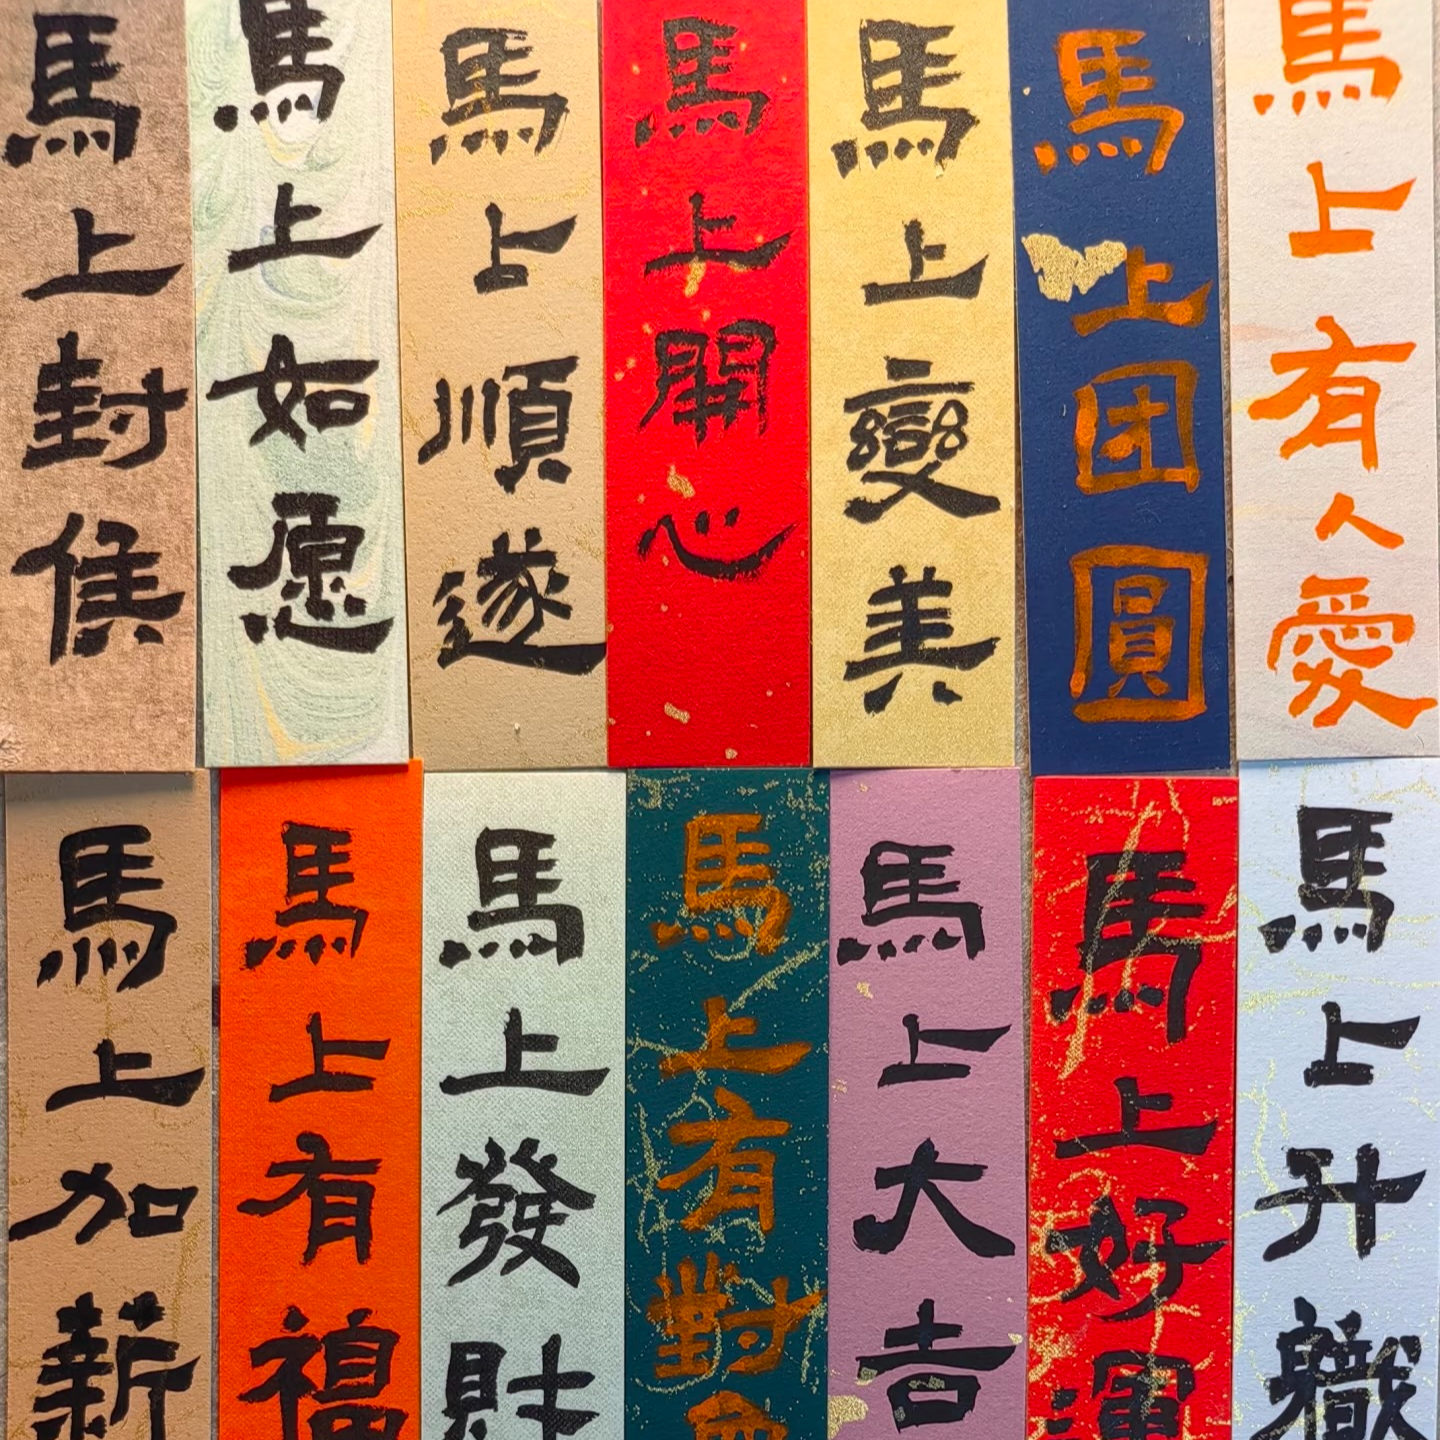 馬上封侯
馬上如愿
馬上順遂
馬上開心
馬上變美
馬上团圓
馬上有人愛
馬上加薪
馬上有福
馬上發財
馬上有對象
馬上大吉
馬上好運
馬上升職